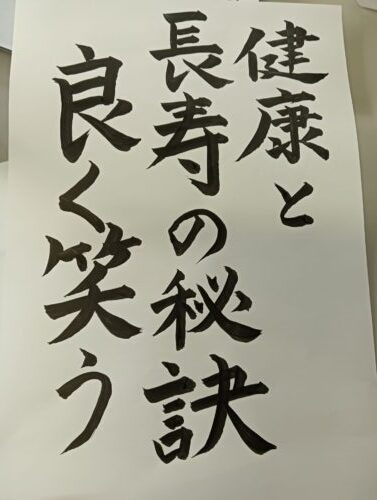 健康と
長寿の秘訣
良く笑う